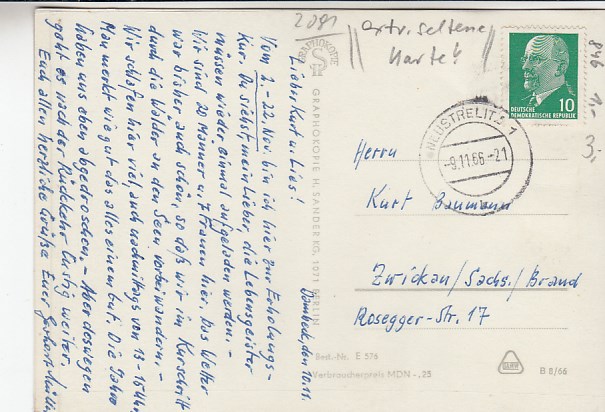 2081
extr. seltene
Karte!
846
1,-
3,-
DEUTSCHE
DEMOKRATISCHE REPUBLIK
10
NEUSTRELITZ 1
-9.11.66-21
GRAPHOKOPIE
GRAPHOKOPIE H. SANDER KG, 1071 BERLIN
Herrn
Kurt Baumann
Zwickau/Sachs./Brand
Rosegger-Str. 17
Best.-Nr. E 576
Verbraucherpreis MDN -,25
B 8/66
den 10.11.
Liebe Kurt u. Lies!
Vom 2.-22. Nov. bin ich hier zur Erholungs-
Kur. Du siehst, mein Lieber, die Lebensgeister
müssen wieder einmal aufgeladen werden. -
Wir sind 20 Männer u. 7 Frauen hier. Das Wetter
war bisher auch schön, so daß wir im Kurschritt
durch die Wälder, an den Seen vorbeiwandern. -
Wir schlafen hier viel, auch nachmittags von 13-15 Uhr.
Man merkt wie gut das alles einem tut. Die Jahre
haben uns eben abgedroschen. - Aber deswegen
geht es nach der Rückkehr lustig weiter.
Euch allen herzliche Grüße Euer Gerhart